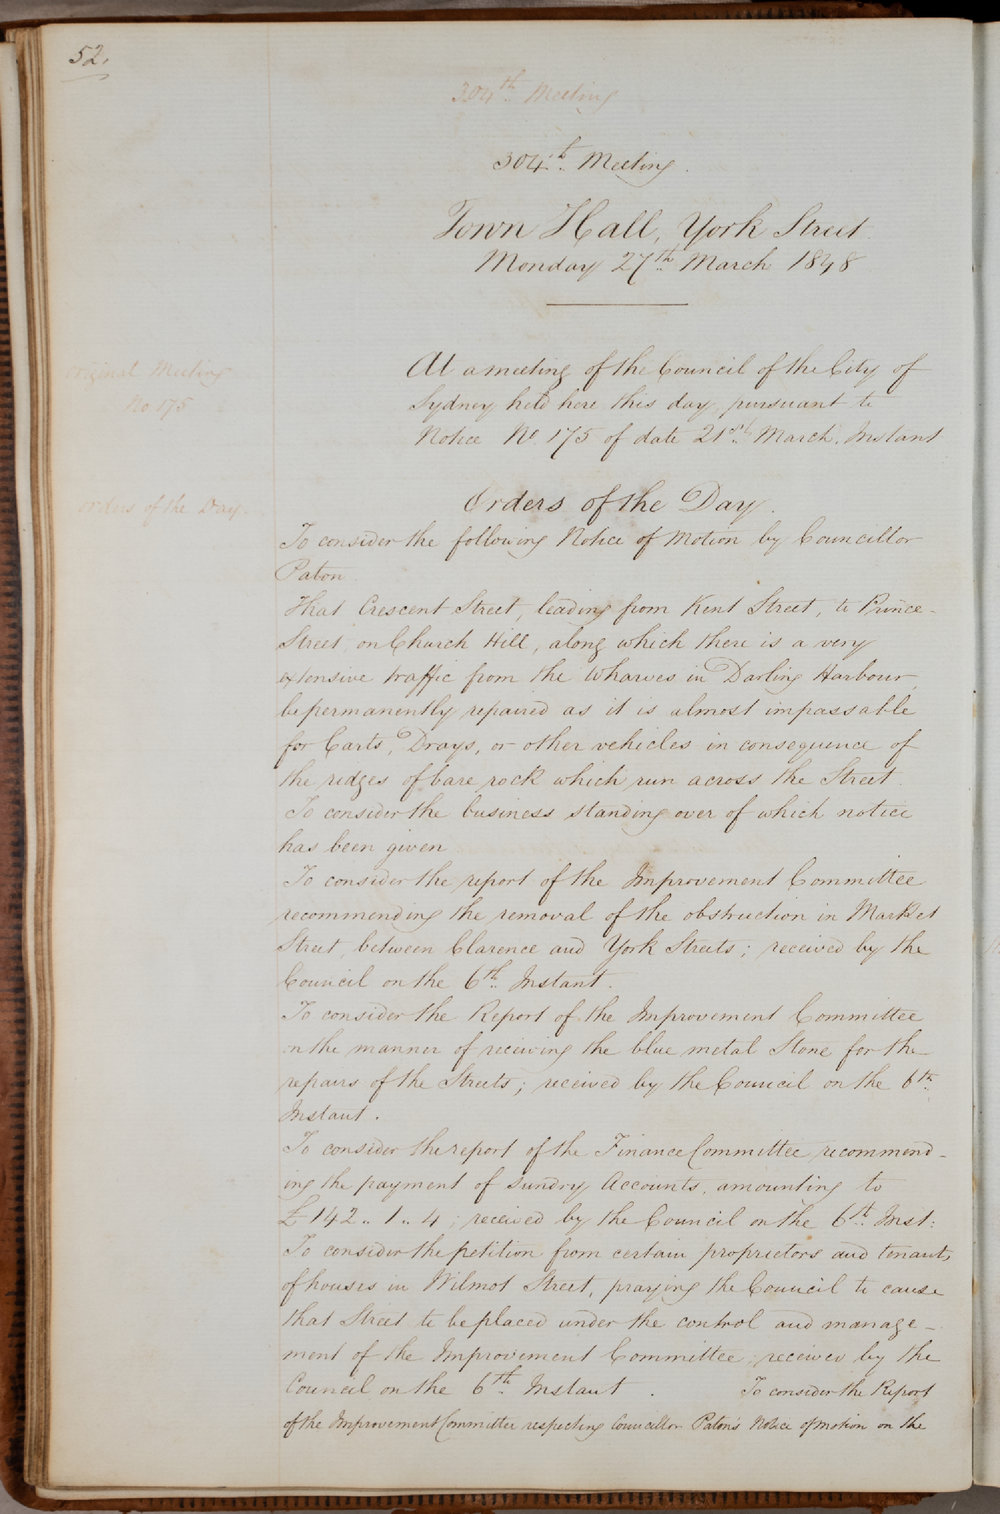 52.
304th Meeting
304th Meeting.
Town Hall, York Street.
Monday 27th March 1848
Original Meeting
No 175
At a meeting of the Council of the City of
Sydney held here this day, pursuant to
Notice No 175 of date 21st March, Instant
Orders of the Day
Orders of the Day.
To consider the following Notice of Motion by Councillor
Paton.
That Crescent Street, leading from Kent Street, to Prince-
Street, on Church Hill, along which there is a very
extensive traffic from the Wharves in Darling Harbour,
be permanently repaired as it is almost impassable
for Carts, Drays, or other vehicles in consequence of
the ridges of bare rock which run across the Street.
To consider the business standing over of which notice
has been given
To consider the report of the Improvement Committee
recommending the removal of the obstruction in Market
Street, between Clarence and York Streets; received by the
Council on the 6th Instant.
To consider the Report of the Improvement Committee
on the manner of receiving the blue metal Stone for the
repairs of the Streets; received by the Council on the 6th
Instant.
To consider the report of the Finance Committee recommend-
ing the payment of Sundry Accounts, amounting to
£142..1..4; received by the Council on the 6th Inst:
To consider the petition from certain proprietors and tenants
of houses in Wilmot Street, praying the Council to cause
that Street to be placed under the control and manage-
ment of the Improvement Committee, received by the
Council on the 6th Instant. To consider the Report
of the Improvement Committee respecting Councillor Paton's Notice of Motion on the